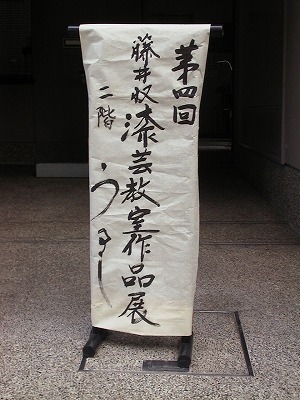 第四回
藤井収漆芸教室作品展
二階
うるし